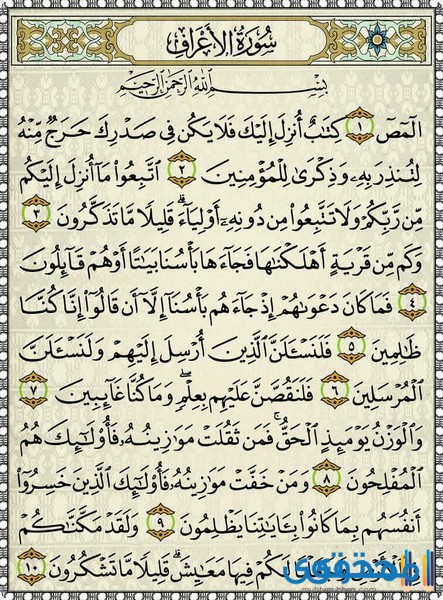 سُورَةُ الأَعْرَافِ
بِسْمِ اللَّهِ الرَّحْمَٰنِ الرَّحِيمِ
الٓمٓصٓ ١ كِتَٰبٌ أُنزِلَ إِلَيْكَ فَلَا يَكُن فِى صَدْرِكَ حَرَجٌ مِّنْهُ
لِتُنذِرَ بِهِۦ وَذِكْرَىٰ لِلْمُؤْمِنِينَ ٢ ٱتَّبِعُوا۟ مَآ أُنزِلَ إِلَيْكُم
مِّن رَّبِّكُمْ وَلَا تَتَّبِعُوا۟ مِن دُونِهِۦٓ أَوْلِيَآءَ ۗ قَلِيلًا مَّا تَذَكَّرُونَ ٣
وَكَم مِّن قَرْيَةٍ أَهْلَكْنَٰهَا فَجَآءَهَا بَأْسُنَا بَيَٰتًا أَوْ هُمْ قَآئِلُونَ
٤ فَمَا كَانَ دَعْوَىٰهُمْ إِذْ جَآءَهُم بَأْسُنَآ إِلَّآ أَن قَالُوٓا۟ إِنَّا كُنَّا
ظَٰلِمِينَ ٥ فَلَنَسْـَٔلَنَّ ٱلَّذِينَ أُرْسِلَ إِلَيْهِمْ وَلَنَسْـَٔلَنَّ
ٱلْمُرْسَلِينَ ٦ فَلَنَقُصَّنَّ عَلَيْهِم بِعِلْمٍ ۖ وَمَا كُنَّا غَآئِبِينَ ٧
وَٱلْوَزْنُ يَوْمَئِذٍ ٱلْحَقُّ ۚ فَمَن ثَقُلَتْ مَوَٰزِينُهُۥ فَأُو۟لَٰٓئِكَ هُمُ
ٱلْمُفْلِحُونَ ٨ وَمَنْ خَفَّتْ مَوَٰزِينُهُۥ فَأُو۟لَٰٓئِكَ ٱلَّذِينَ خَسِرُوٓا۟
أَنفُسَهُم بِمَا كَانُوا۟ بِـَٔايَٰتِنَا يَظْلِمُونَ ٩ وَلَقَدْ مَكَّنَّٰكُمْ
لَكُمْ فِيهَا مَعَٰيِشَ ۗ قَلِيلًا مَّا تَشْكُرُونَ ١٠
محتوى